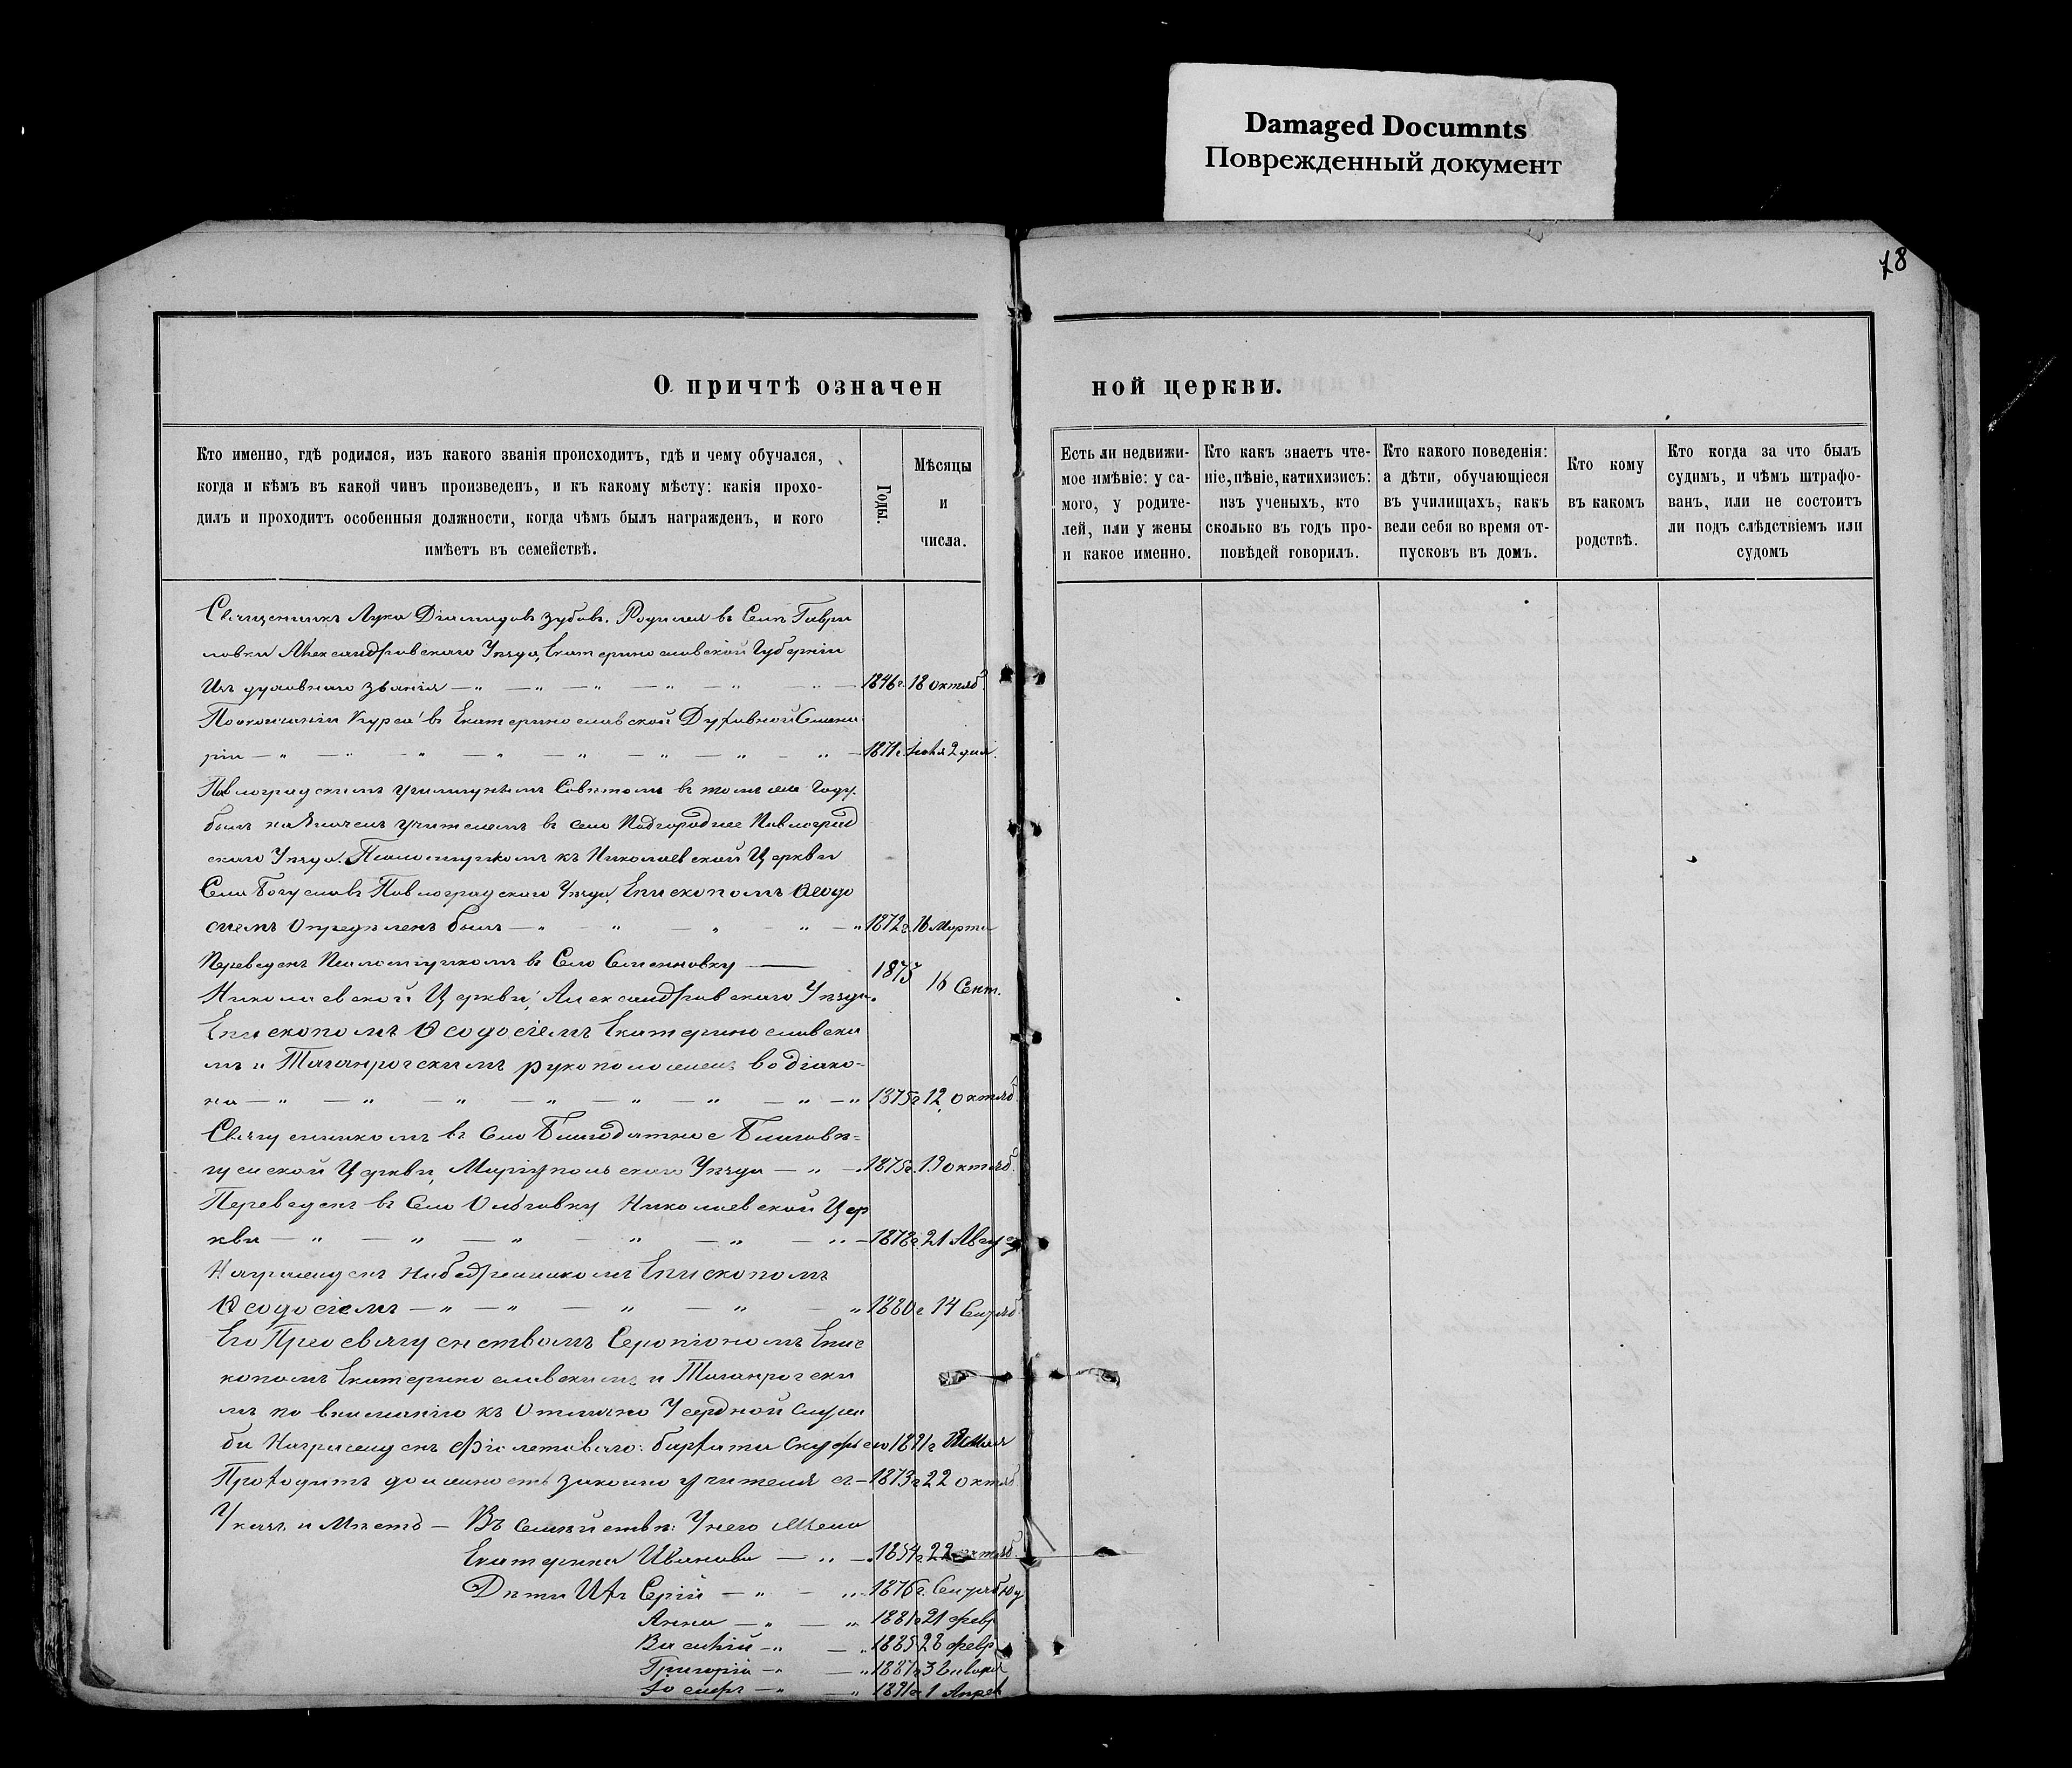 Damaged Documnts
Поврежденный документ
78
О причтѣ означен
ной церкви.
Кто именно, гдѣ родился, изъ какого званія происходитъ, гдѣ и чему обучался,
когда и кѣмъ въ какой чинъ произведенъ, и къ какому мѣсту: какія прохо-
дилъ и проходитъ особенныя должности, когда чѣмъ былъ награжденъ, и кого
имѣетъ въ семействѣ.
Годы.
Мѣсяцы
и
числа.
Есть ли недвижи-
мое имѣніе: у са-
мого, у родите-
лей, или у жены
и какое именно.
Кто какъ знаетъ чте-
ніе, пѣніе, катихизисъ:
изъ ученыхъ, кто
сколько въ годъ про-
повѣдей говорилъ.
Кто какого поведенія:
а дѣти, обучающіеся
въ училищахъ, какъ
вели себя во время от-
пусковъ въ домъ.
Кто кому
въ какомъ
родствѣ.
Кто когда за что былъ
судимъ, и чѣмъ штрафо-
ванъ, или не состоитъ
ли подъ слѣдствіемъ или
судомъ
Священникъ Лука Діамидовъ Зубовъ. Родился въ Селѣ Гаври
ловки Александровскаго Уѣзда, Екатеринославской Губерніи
Изъ духовнаго званія — „ — „ — „ — „ — „ — 1846г. 18 октяб.
По окончаніи Курса въ Екатеринославской Духовной Семена
ріи — „ — „ — „ — „ — „ — „ — 1871г. Іюля 2 дня.
Павлоградскимъ училищнымъ Совѣтомъ въ томъ же Году.
былъ назначенъ учителемъ въ село Подгороднее Павлоград
скаго Уѣзда. Псаломщикомъ къ Николаевской Церкви
Села Богуславъ Павлоградскаго Уѣзда, Епископомъ Ѳеодо
сіемъ Опредѣленъ былъ — „ „ — „ „ — „ 1872г. 16 Марта
Переведенъ Псаломщикомъ въ Село Семеновку —— 1875
Николаевской Церкви, Александровскаго Уѣзда. 16 Сент.
Епископомъ Ѳеодосіемъ Екатеринославски
мъ и Таганрогскимъ рукоположенъ во діако-
на — „ — „ — „ — „ — „ — „ — „ — „ 1875г. 12 октяб.
Священникомъ въ Село Благодатное Благовѣ=
щенской Церкви, Маріупольскаго Уѣзда — „ — 1875г. 19 октяб.
Переведенъ въ Село Ольговку Николаевской Цер
кви — „ — „ — „ — „ — „ — „ — 1878г. 21 Август
Награжденъ Набедренникомъ Епископомъ
Ѳеодосіемъ — „ — „ — „ — „ „ 1880г. 14 Сентяб.
Его Преосвященствомъ Серапіономъ Епис
копомъ Екатеринославскимъ и Таганрогски
мъ по вниманію къ Отлично Усердной служ
бы Награжденъ Фіолетоваго: бархата Скуфьею 1891г. Мая
Проходитъ должность законоучителя съ — 1873г. 22 октяб.
Указъ и Мѣетъ — Въ Семействѣ: У него Жена
Екатерина Иванова — „ — 1854г. 22 октяб.
Дѣти Ихъ Сергій — „ — „ 1876г. Сентяб
Анна — „ — „ 1881г. 21 февр
Василій — „ — „ 1885 28 февр
Григорій — „ — „ 1887г. 3 Января
Іосифъ — „ „ 1891г. 1 Апрел